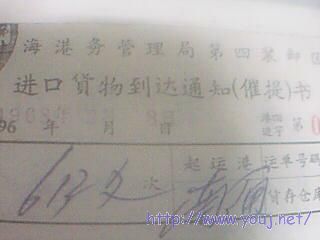 海港务管理局第四装卸区
进口貨物到达通知(催提)书
96 年 月 日 港四进字 第0
次 起运港 运单号码
613
貨存仓库
http://www.youj.net/